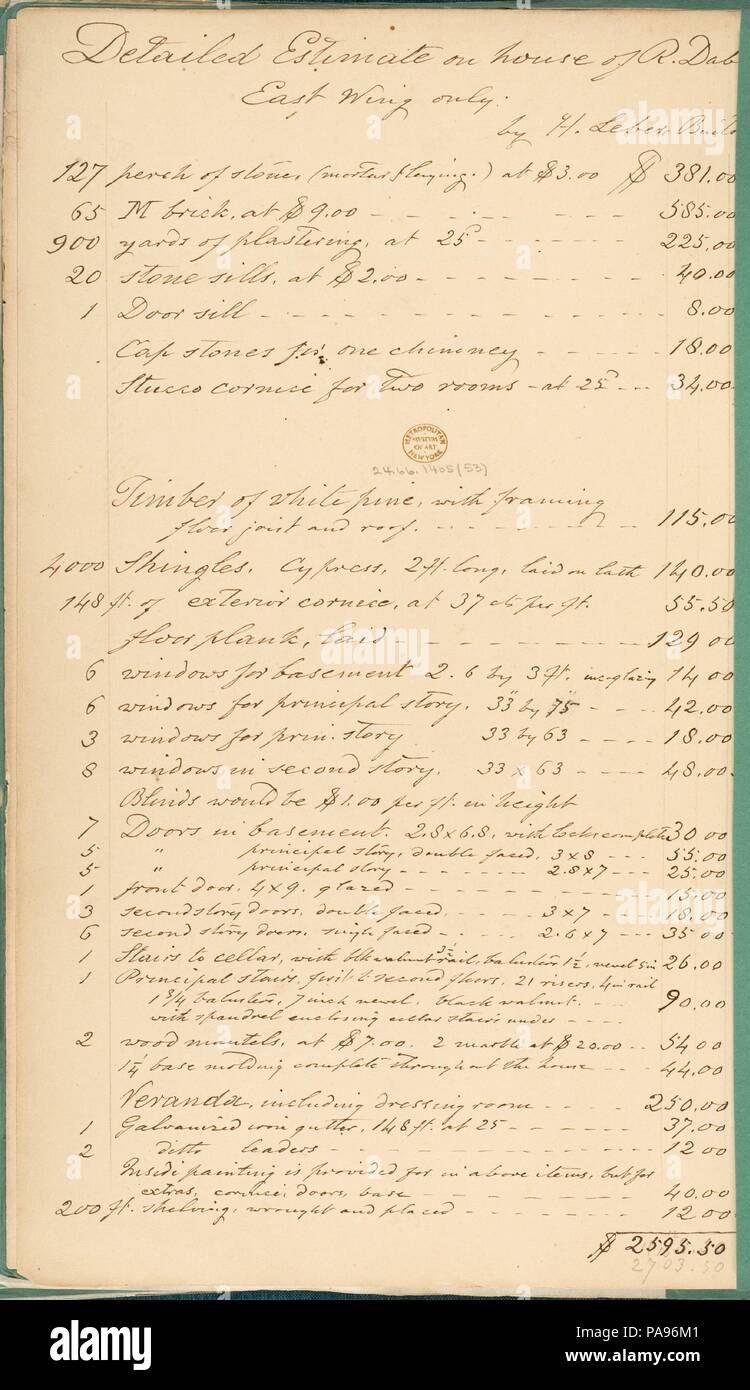 Detailed Estimate on house of R. Dab
East Wing only:
by H. Leber, Build
127 perch of stone, (mortar & laying.) at $3.00 $ 381.00
65 M brick, at $9.00 - - - - - - - 585.00
900 yards of plastering, at 25c - - - - - 225.00
20 stone sills, at $2.00 - - - - - - - 40.00
1 Door sill - - - - - - - - - - - 8.00
Cap stones for one chimney - - - - - 18.00
Stucco cornice for Two rooms - at 25c - - - 34.00
METROPOLITAN
MUSEUM
OF ART
NEW YORK
24.66.1405(53)
Timber of white pine, with framing
floor joist and roof. - - - - - - - - - 115.00
4000 Shingles, Cypress, 2 ft. long, laid on lath 140.00
148 ft. of exterior cornice, at 37 cts per ft. 55.50
floor plank, laid - - - - - - - - - 129 00
6 windows for basement 2.6 by 3 ft. inc glazing 14 00
6 windows for principal story. 33" by 75" - - - - 42.00
3 windows for prin. story 33 by 63 - - - - 18.00
8 windows in second story. 33 x 63 - - - - 48.00
Blinds would be $1.00 per ft. in height
7 Doors in basement. 2.8 x 6.8, with locks complete 30 00
5 " principal story, double faced, 3 x 8 - - - 55.00
5 " principal story - - - - - - - 2.8 x 7 - - - 25.00
1 front door, 4 x 9. glazed - - - - - - - - - 15.00
3 second story doors, double faced - - - - 3 x 7 - - - - 18.00
6 second story doors, single faced - - - - 2.6 x 7 - - - 35 00
1 Stairs to cellar, with blk walnut 3½ rail, baluster 1½, newel 5 in 26.00
1 Principal stairs, first to second floors, 21 risers, 4 in rail
1 3/4 balusters, 7 inch newel, black walnut. - - - - 90.00
with spandrel enclosing cellar stairs under - - - -
2 wood mantels, at $7.00. 2 marble at $20.00 - - 54 00
1¼ base molding complete throughout the house - - - 44.00
Veranda, including dressing room - - - - 250.00
1 Galvanized iron gutter, 148 ft. at 25 - - - - - - 37.00
2 ditto leaders - - - - - - - - - - 12 00
Inside painting is provided for in above items, but for
extras, cornice, doors, base - - - - - - - - 40.00
200 ft. shelving, wrought and placed - - - - - - - 12 00
$ 2595.50
2703.50
alamy
alamy
alamy
alamy
a
a
a
a
a
a
alamy
Image ID: PA96M1
www.alamy.com